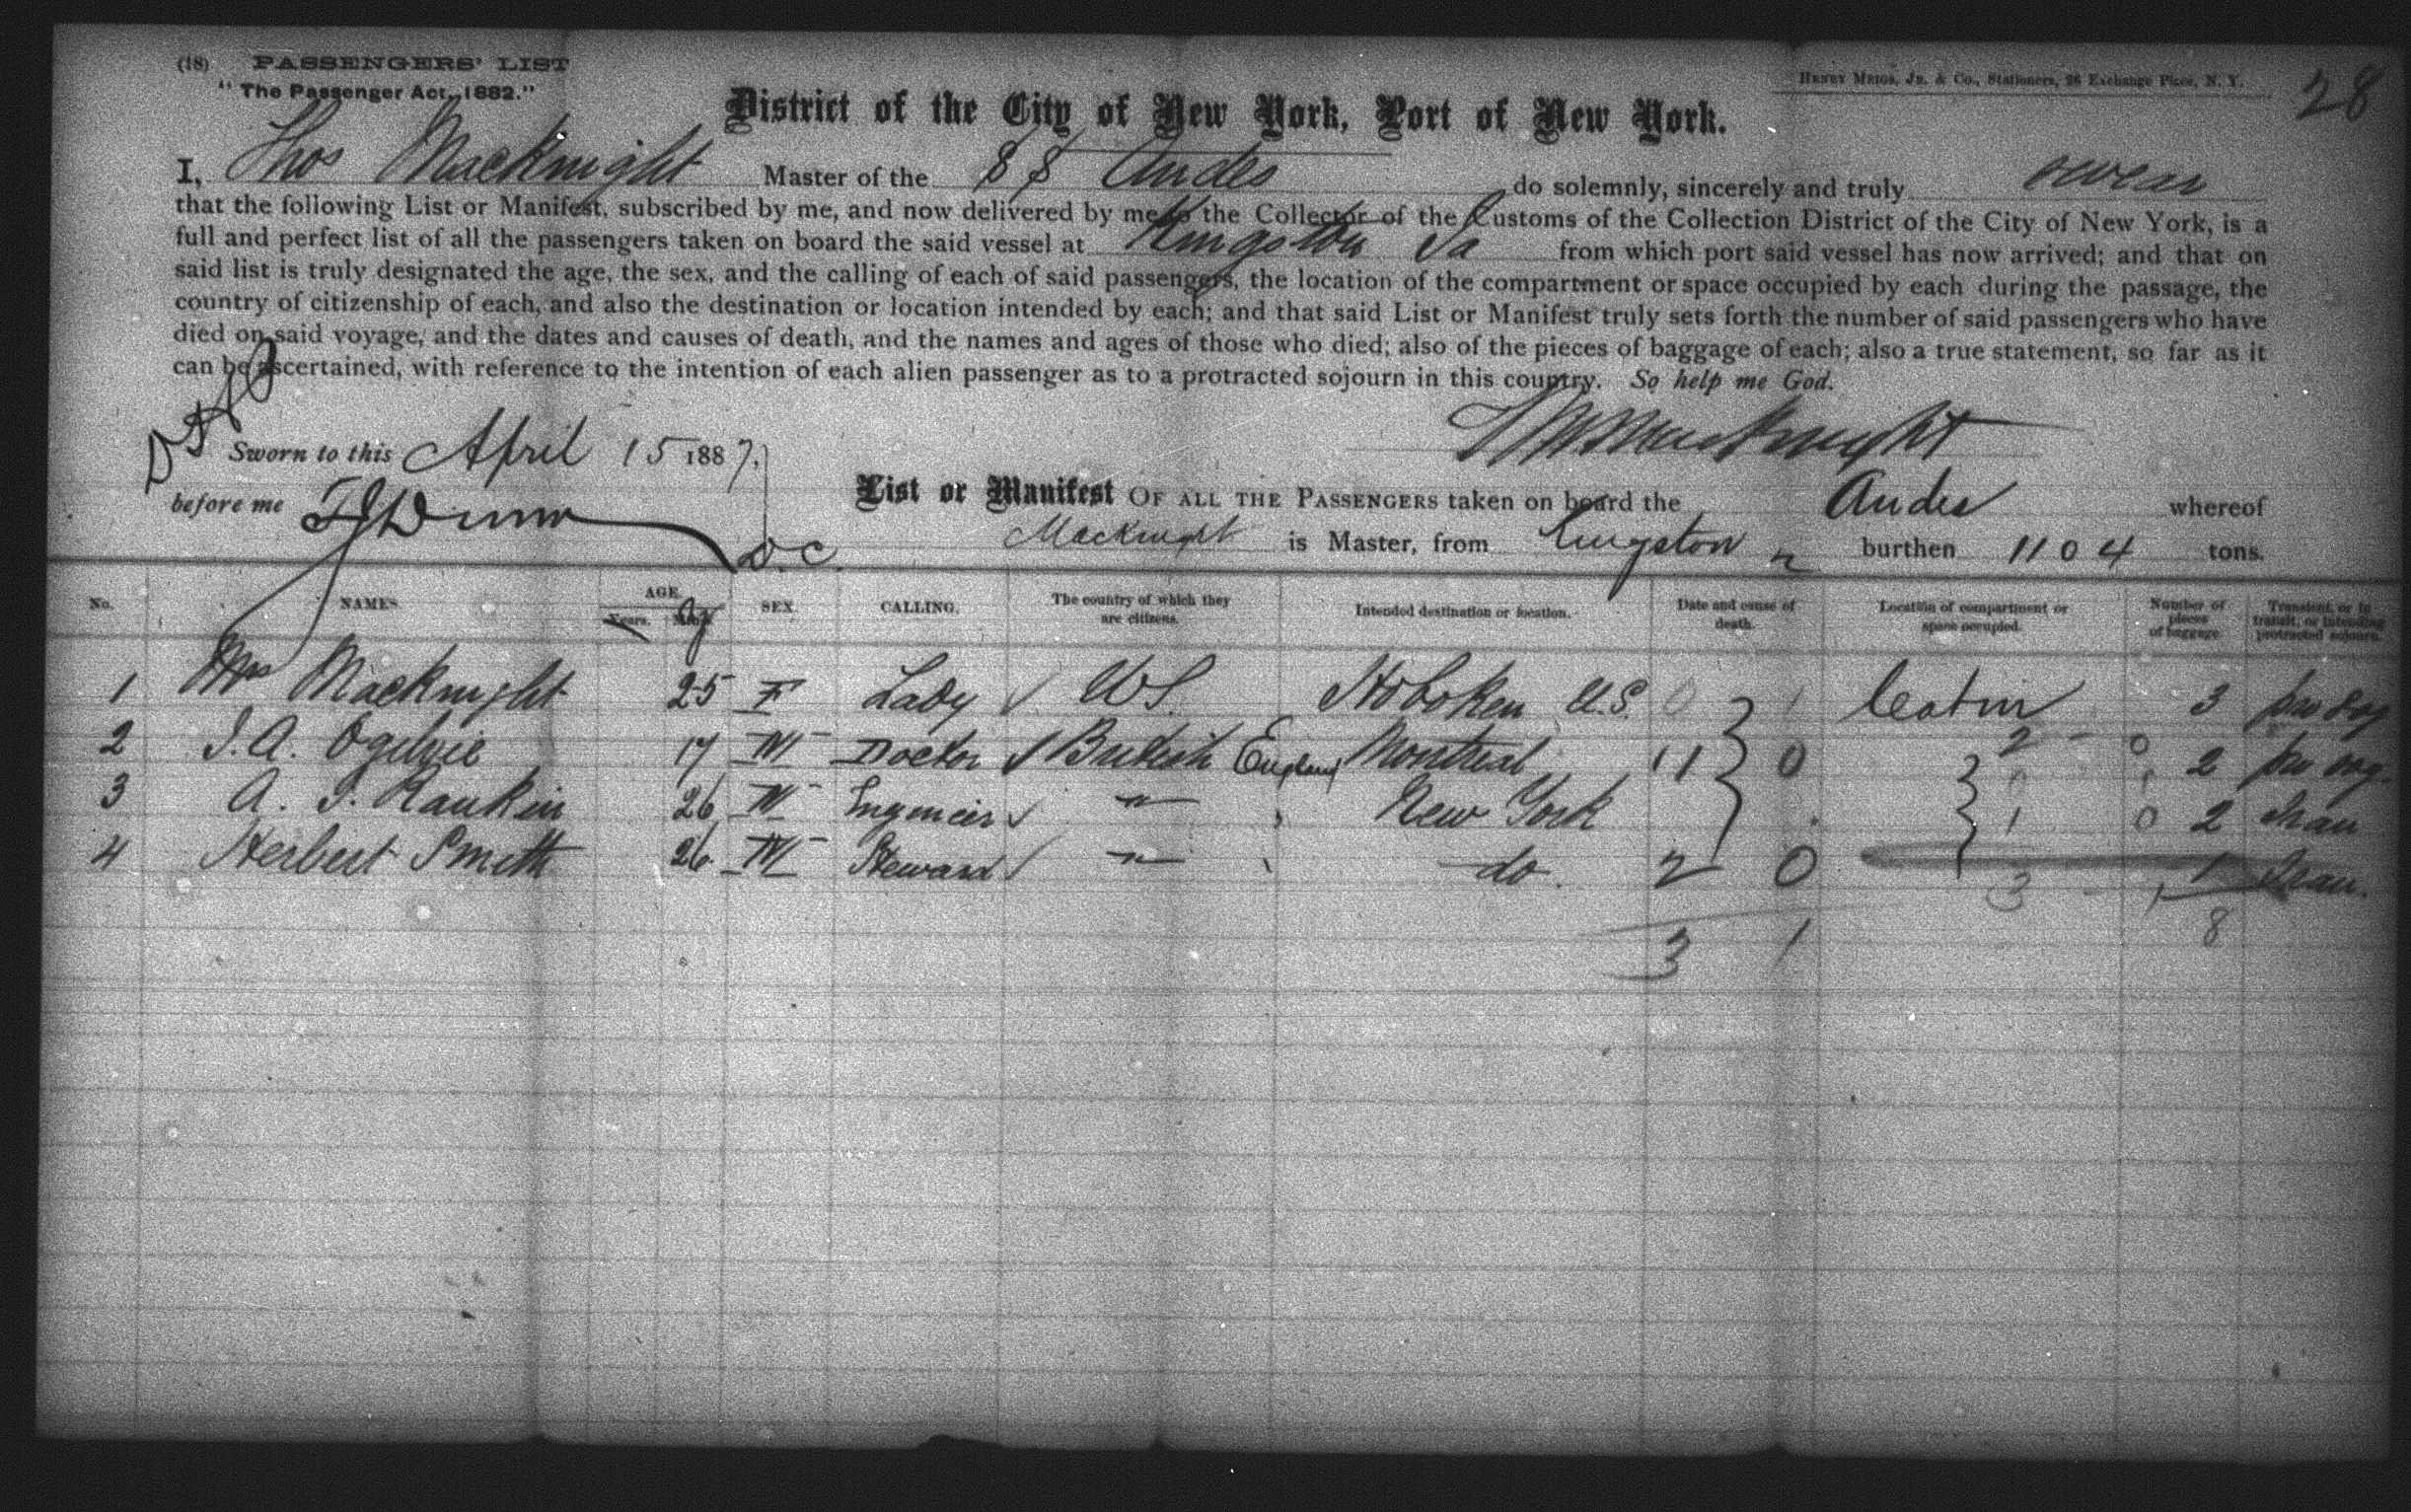 (18) PASSENGERS' LIST
"The Passenger Act, 1882."
HENRY MEIGS, JR. & CO., Stationers, 26 Exchange Place, N. Y.
28
District of the City of New York, Port of New York.
I, Thos Macknight Master of the SS Andes do solemnly, sincerely and truly swear
that the following List or Manifest, subscribed by me, and now delivered by me to the Collector of the Customs of the Collection District of the City of New York, is a
full and perfect list of all the passengers taken on board the said vessel at Kingston Ja from which port said vessel has now arrived; and that on
said list is truly designated the age, the sex, and the calling of each of said passengers, the location of the compartment or space occupied by each during the passage, the
country of citizenship of each, and also the destination or location intended by each; and that said List or Manifest truly sets forth the number of said passengers who have
died on said voyage, and the dates and causes of death, and the names and ages of those who died; also of the pieces of baggage of each; also a true statement, so far as it
can be ascertained, with reference to the intention of each alien passenger as to a protracted sojourn in this country. So help me God.
Macknight
Sworn to this April 15 1887.
before me
D.C.
List or Manifest OF ALL THE PASSENGERS taken on board the Andes whereof
Macknight is Master, from Kingston burthen 1104 tons.
No. NAMES AGE. Years. SEX. CALLING. The country of which they are citizens. Intended destination or location. Date and cause of death. Location of compartment or space occupied. Number of pieces of baggage. Transient, or in transit, or intending protracted sojourn.
1 Mrs Macknight 25 F Lady U S. Hoboken U.S. 0 1 Cabin 3
2 J. A. Ogilvie 17 M Doctor British England Montreal 11 0 2 0 2
3 A. J. Rankin 26 M Engineer " New York 1 0 2 Tran
4 Herbert Smith 26 M Steward " do. 2 0 3 1 1 Tran.
3 1 8